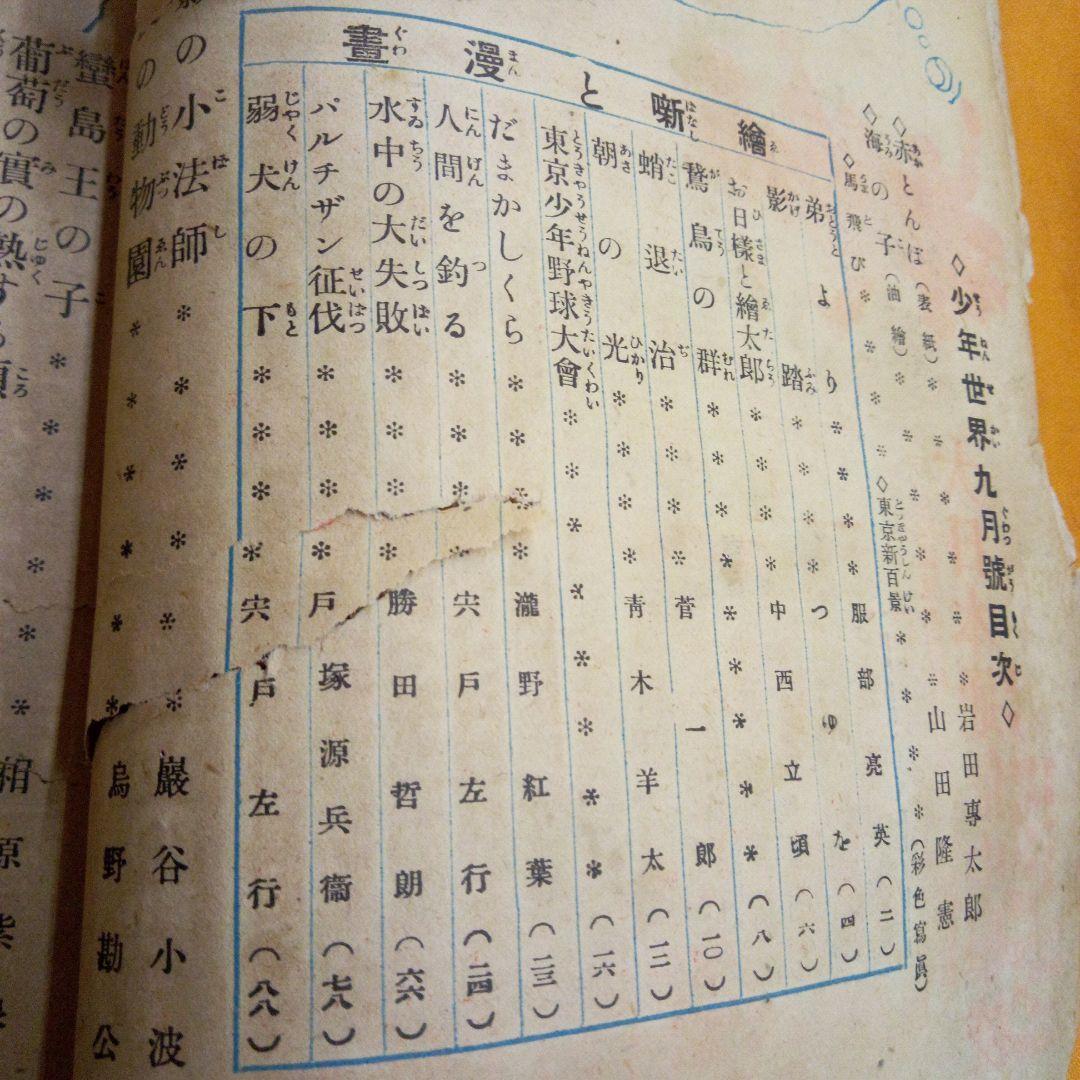 ◇少年世界九月號目次◇
◇赤とんぼ（表紙）＊＊＊＊＊＊岩田專太郎
◇海の子（油繪）＊＊＊＊＊＊山田隆憲
◇馬飛び＊＊＊◇東京新百景＊＊＊＊（彩色寫眞）
繪噺と漫畫
弟より＊＊＊服部亮英（二）
影踏＊＊＊＊つゆを（四）
お日樣と繪太郎＊＊＊中西立頃（六）
鵞鳥の群＊＊＊＊＊＊＊＊（八）
蛸退治＊＊＊菅一郎（一〇）
朝の光＊＊＊＊青木羊太（一二）
東京少年野球大會＊＊＊＊＊＊＊＊（一六）
だまかしくら＊＊＊瀧野紅葉（二三）
人間を釣る＊＊＊＊宍戸左行（二四）
水中の大失敗＊＊＊＊勝田哲朗（六六）
パルチザン征伐＊＊＊＊戸塚源兵衞（七八）
弱犬の下＊＊＊＊宍戸左行（八八）
の小法師＊＊＊＊＊＊巖谷小波
の動物園＊＊＊＊＊＊烏野勘公
蠻島王の子＊＊＊
葡萄の實の熟する頃＊＊＊＊＊原紫